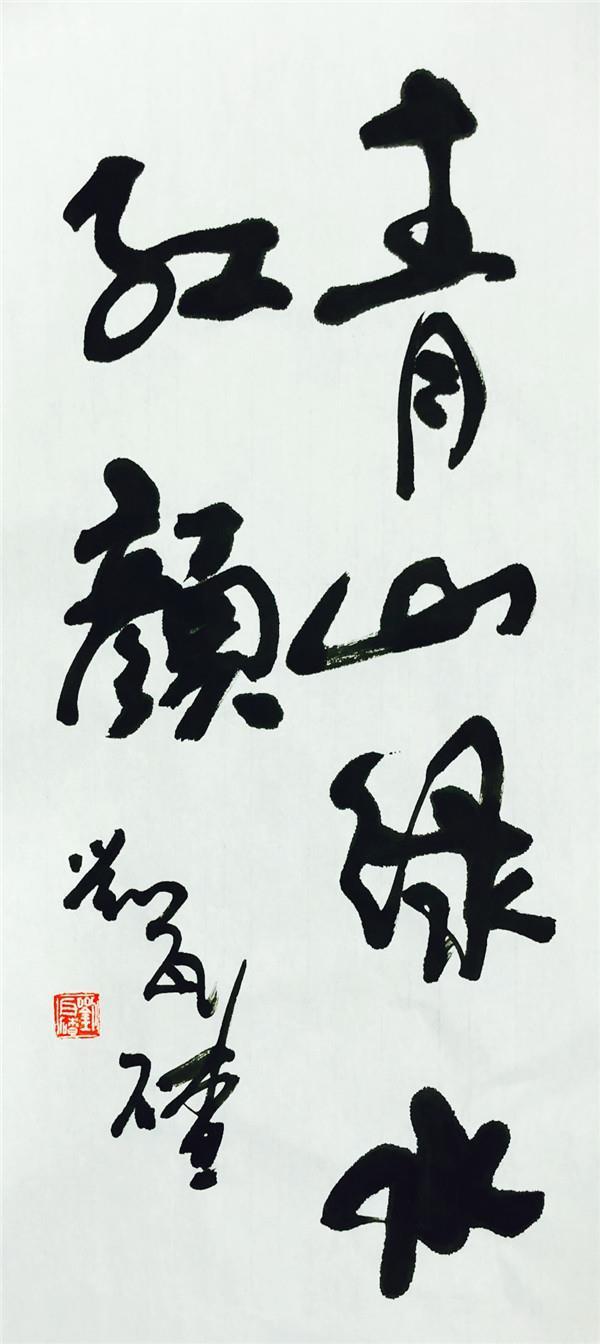 青山绿水
红颜